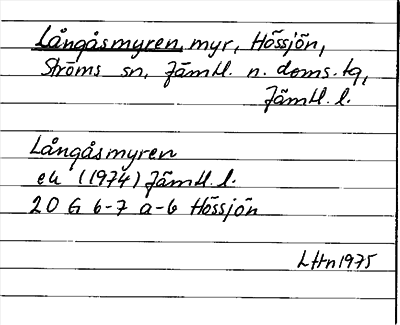 Långåsmyren, myr, Hössjön,
Ströms sn, Jämtl. n. doms. tg,
Jämtl. l.
Långåsmyren
ek (1974) Jämtl. l.
20 G 6-7 a-b Hössjön
LHn 1975